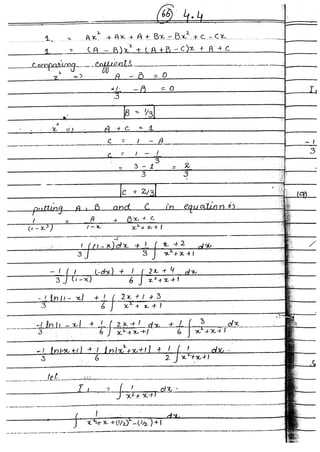 (66) 4.4
1 = Ax² + Ax + A + Bx - Bx² + C - Cx
1 = (A - B)x² + (A + B - C)x + A + C
Comparing coefficients
x² => A - B = 0
1/3 - B = 0
B = 1/3
x⁰ => A + C = 1
C = 1 - A
C = 1 - 1/3
= 3 - 1 / 3 = 2/3
C = 2/3
putting A, B and C in equation
1/(1-x³) = A/(1-x) + Bx + C/(x² + x + 1)
1/3 ∫ (1-x)dx + 1/3 ∫ x + 2/(x² + x + 1) dx
-1/3 ∫ 1/(1-x) (-dx) + 1/6 ∫ 2x + 4/(x² + x + 1) dx
-1/3 ln|1-x| + 1/6 ∫ 2x + 1 + 3/(x² + x + 1)
-1/3 ln|1-x| + 1/6 ∫ 2x + 1/(x² + x + 1) dx + 1/6 ∫ 3/(x² + x + 1) dx
-1/3 ln|-x+1| + 1/6 ln|x² + x + 1| + 1/2 ∫ 1/(x² + x + 1) dx.
let
I₁ = ∫ 1/(x² + x + 1) dx.
∫ 1/(x² + x + (1/2)² - (1/2)² + 1) dx